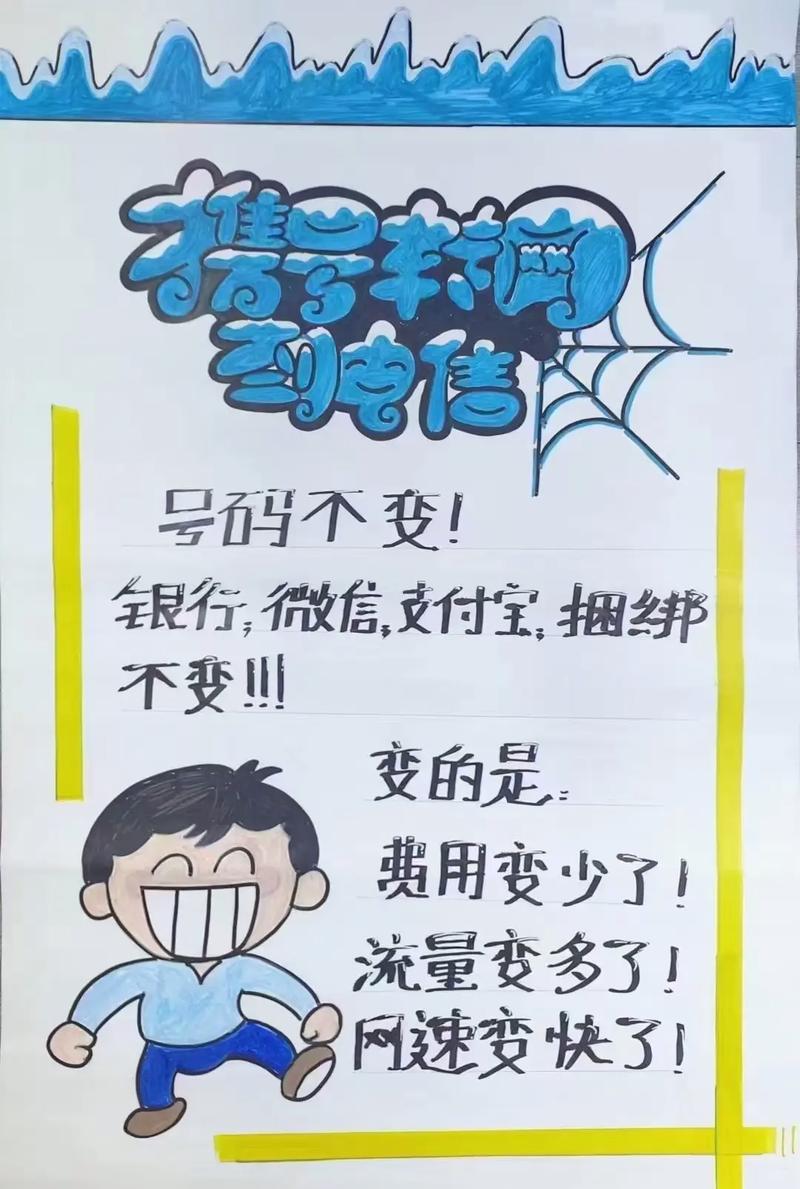 携号转网
到电信
号码不变!
银行,微信,支付宝,捆绑
不变!!!
变的是:
费用变少了!
流量变多了!
网速变快了!